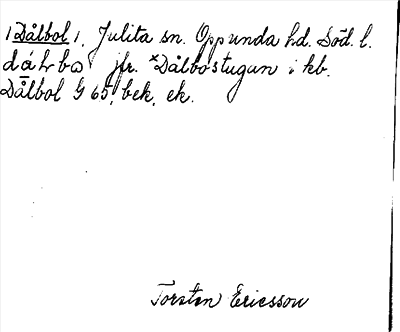 /Dålbol/, Julita sn. Oppunda hd. Söd. l.
dálba jfr. *Dålbostugan i kb.
Dålbol G 65, bek. ek.
Torsten Ericsson